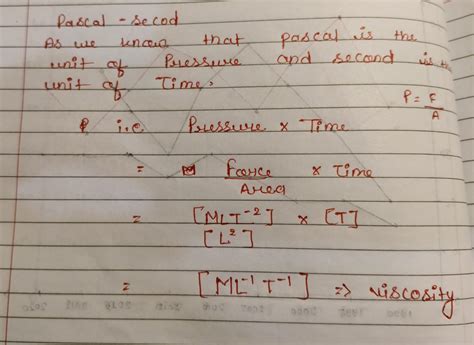 Pascal - secod
As we know that pascal is the
unit of Pressure and second is the
unit of Time.
P = F/A
i.e. Pressure × Time
= Force/Area × Time
= [MLT⁻²]/[L²] × [T]
= [ML⁻¹T⁻¹] => Viscosity